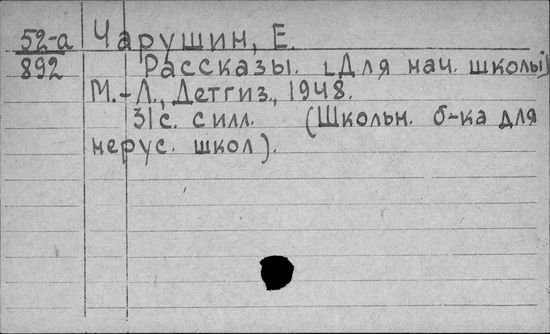 52-а Чарушин, Е.
892 Рассказы. [Для нач. школы]
М.-Л., Детгиз, 1948.
31с. с илл. (Школьн. б-ка для
нерус. школ).